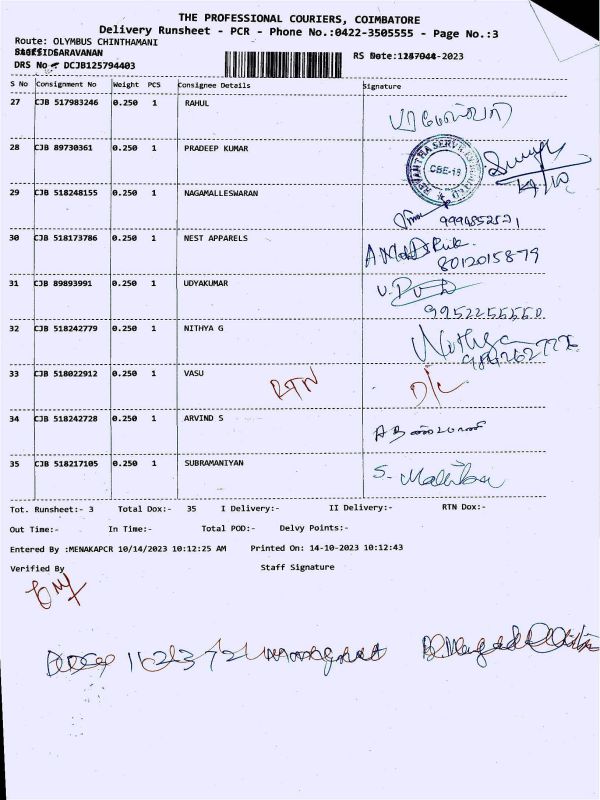 THE PROFESSIONAL COURIERS, COIMBATORE
Delivery Runsheet - PCR - Phone No.:0422-3505555 - Page No.:3
Route: OLYMBUS CHINTHAMANI
SARAVANAN
RS Date:
-2023
DRS No
DCJB125794403
S No Consignment No Weight PCS Consignee Details Signature
27 CJB 517983246 0.250 1 RAHUL
28 CJB 89730361 0.250 1 PRADEEP KUMAR
CBE-18
29 CJB 518248155 0.250 1 NAGAMALLESWARAN
9994852521
30 CJB 518173786 0.250 1 NEST APPARELS
8012015879
31 CJB 89893991 0.250 1 UDYAKUMAR
32 CJB 518242779 0.250 1 NITHYA G
Nithya
33 CJB 518022912 0.250 1 VASU RTN D/L
34 CJB 518242728 0.250 1 ARVIND S
35 CJB 518217105 0.250 1 SUBRAMANIYAN
Tot. Runsheet:- 3 Total Dox:- 35 I Delivery:- II Delivery:- RTN Dox:-
Out Time:- In Time:- Total POD:- Delvy Points:-
Entered By :MENAKAPCR 10/14/2023 10:12:25 AM Printed On: 14-10-2023 10:12:43
Verified By Staff Signature